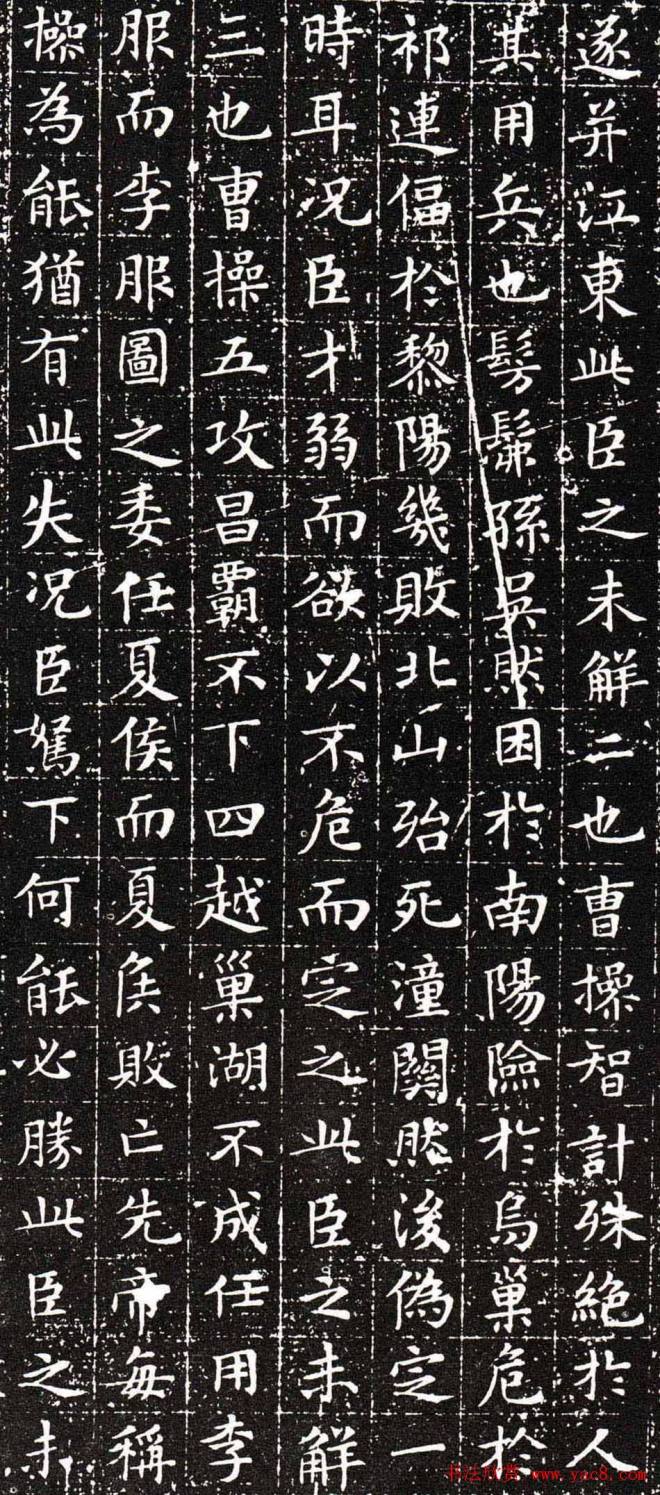 遂并江東此臣之未解二也曹操智計殊絶於人
其用兵也髣髴孫吳然困於南陽險於烏巢危於
祁連偪於黎陽幾敗北山殆死潼關然後偽定一
時耳况臣才弱而欲以不危而定之此臣之未解
三也曹操五攻昌霸不下四越巢湖不成任用李
服而李服圖之委任夏侯而夏侯敗亡先帝每稱
操為能猶有此失况臣駑下何能必勝此臣之未
书法欣赏 www.yac8.com